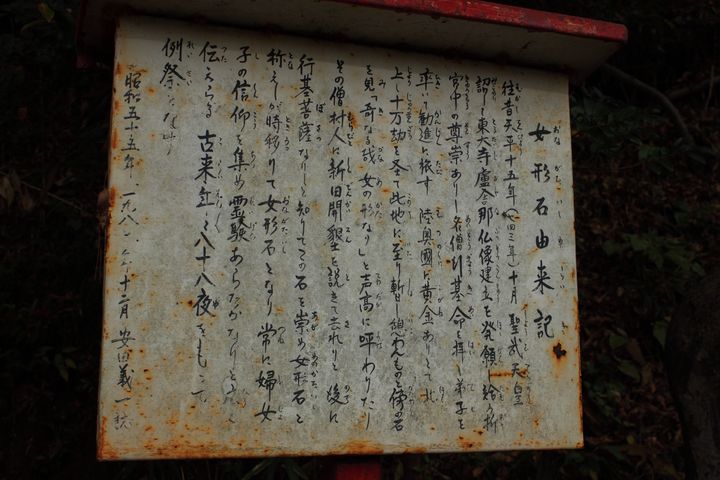 女形石由来記
往昔天平十五年(七四三年)十月 聖武天皇
詔して東大寺盧舎那仏像建立を発願し給う折
宮中の尊崇ありし名僧行基 命を拝し弟子を
率て勧進に旅す 陸奥國に黄金ありとて北
上し十万劫を全て此地に至り暫し憩わんもと傍の石
を見 奇なる哉 女の形なり と声高に呼わりたり
その僧村人に新田開墾を説きて去れりと 後に
行基菩薩なりしと知りてこの石を崇め女形石と
称えしが時移りて女形石となり 常に婦女
子の信仰を集め 霊験あらたかなりと
伝えらる 古来 八十八夜をもって
例祭となす
昭和五十五年 一九八〇 十二月 安田義一 誌